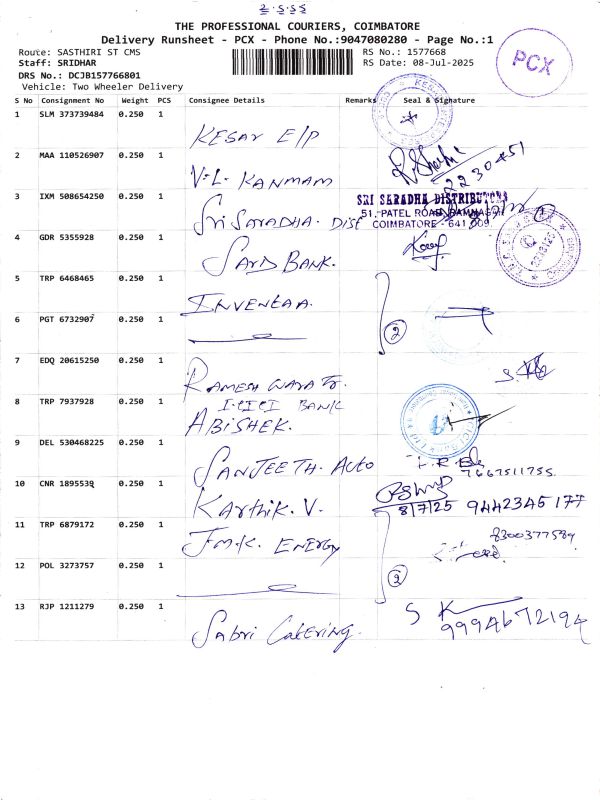 THE PROFESSIONAL COURIERS, COIMBATORE
Delivery Runsheet - PCX - Phone No.:9047080280 - Page No.:1
Route: SASTHIRI ST CMS
RS No.: 1577668
Staff: SRIDHAR
RS Date: 08-Jul-2025
DRS No.: DCJB157766801
Vehicle: Two Wheeler Delivery
PCX
S No Consignment No Weight PCS Consignee Details Remarks Seal & Signature
1 SLM 373739484 0.250 1 KESAV E/P
2 MAA 110526907 0.250 1 V.L. KANMAM
3 IXM 508654250 0.250 1 Sri SARADHA. DIST
SRI SARADHA DISTRIBUTORS
51, PATEL ROAD, RAMNAGAR
COIMBATORE - 641 009.
4 GDR 5355928 0.250 1 SARD BANK.
5 TRP 6468465 0.250 1 INVENTAA.
6 PGT 6732907 0.250 1
2
7 EDQ 20615250 0.250 1 RAMESH
8 TRP 7937928 0.250 1 I.CICI BANK
ABISHEK.
9 DEL 530468225 0.250 1 SANJEETH. AUTO
7667511755.
10 CNR 1895539 0.250 1 Karthik. V.
8/7/25 9442345177
11 TRP 6879172 0.250 1 J.M.K. ENERGY
8300377584
12 POL 3273757 0.250 1
2
13 RJP 1211279 0.250 1 Sabri Catering.
S K
9994672194